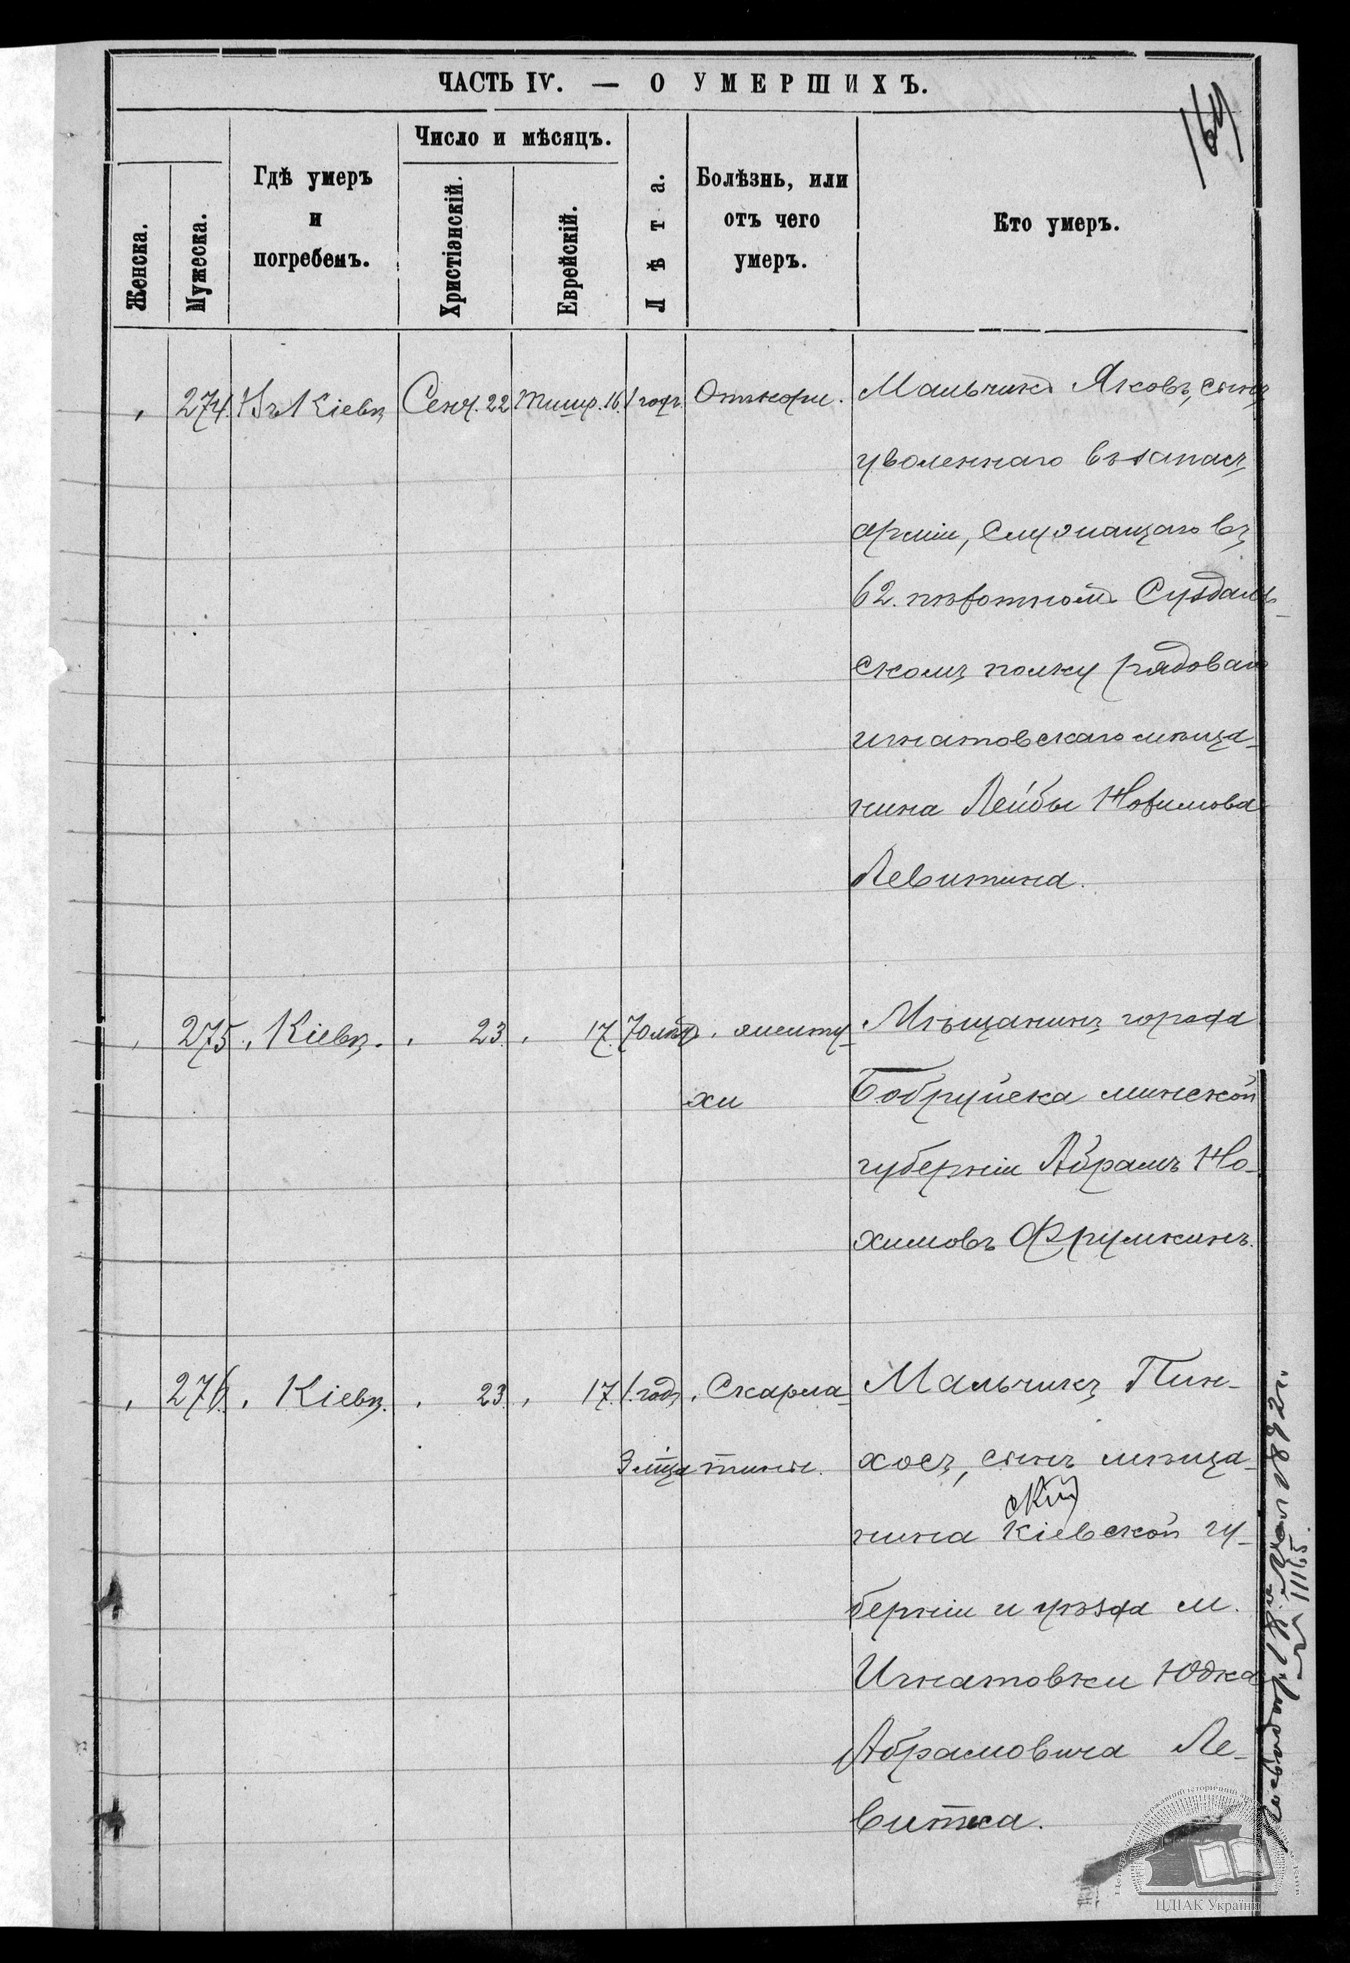 ЧАСТЬ IV. — О УМЕРШИХЪ.
164
Женска.
Мужеска.
Гдѣ умеръ
и
погребенъ.
Число и мѣсяцъ.
Христіанскій.
Еврейскій.
Лѣта.
Болѣзнь, или
отъ чего
умеръ.
Кто умеръ.
274. Въ г Кіевѣ Сент. 22 Тишр. 16. 1 годъ Отъ кори. Мальчикъ Яковъ, сынъ
уволеннаго въ запасъ
арміи, служащаго въ
62. пѣхотномъ Суздаль-
скомъ полку рядоваго
игнатовскаго мѣща-
нина Лейбы Нохимова
Левитина.
275. " Кіевѣ. " 23. " 17. 70 лѣтъ " Мѣщанинъ города
хи Бобруйска минской
губерніи Абрамъ Но-
химовъ Фрумкинъ.
276. " Кіевѣ. " 23. " 17. 1 годъ " Скарла- Мальчикъ Пин-
3 мѣца тины. хосъ, сынъ мѣща-
ской
нина Кіевской гу-
берніи и уѣзда м.
Игнатовки Юдка
Абрамовича Ле-
витка.
1892 г.
№ 11165
ЦДІАК України